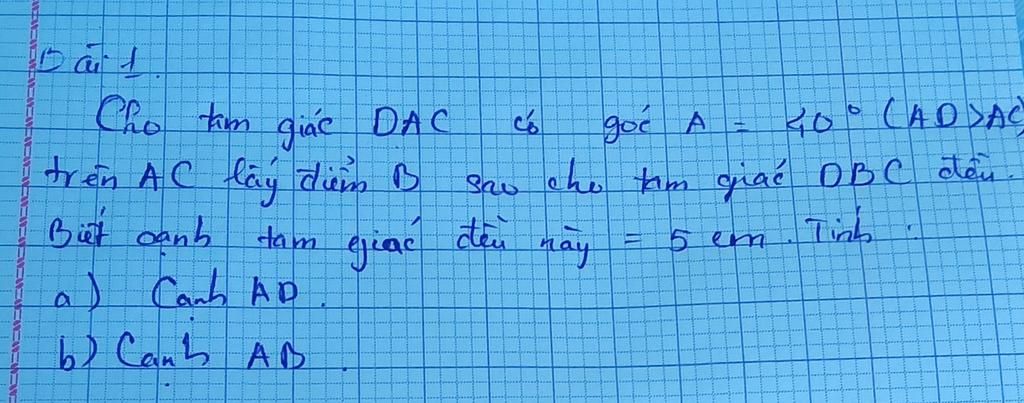 Bài 1.
Cho tam giác DAC có góc A = 40° (AD>AC)
trên AC lấy điểm B sao cho tam giác DBC đều.
Biết cạnh tam giác đều này = 5 cm. Tính:
a) Cạnh AD.
b) Cạnh AB.